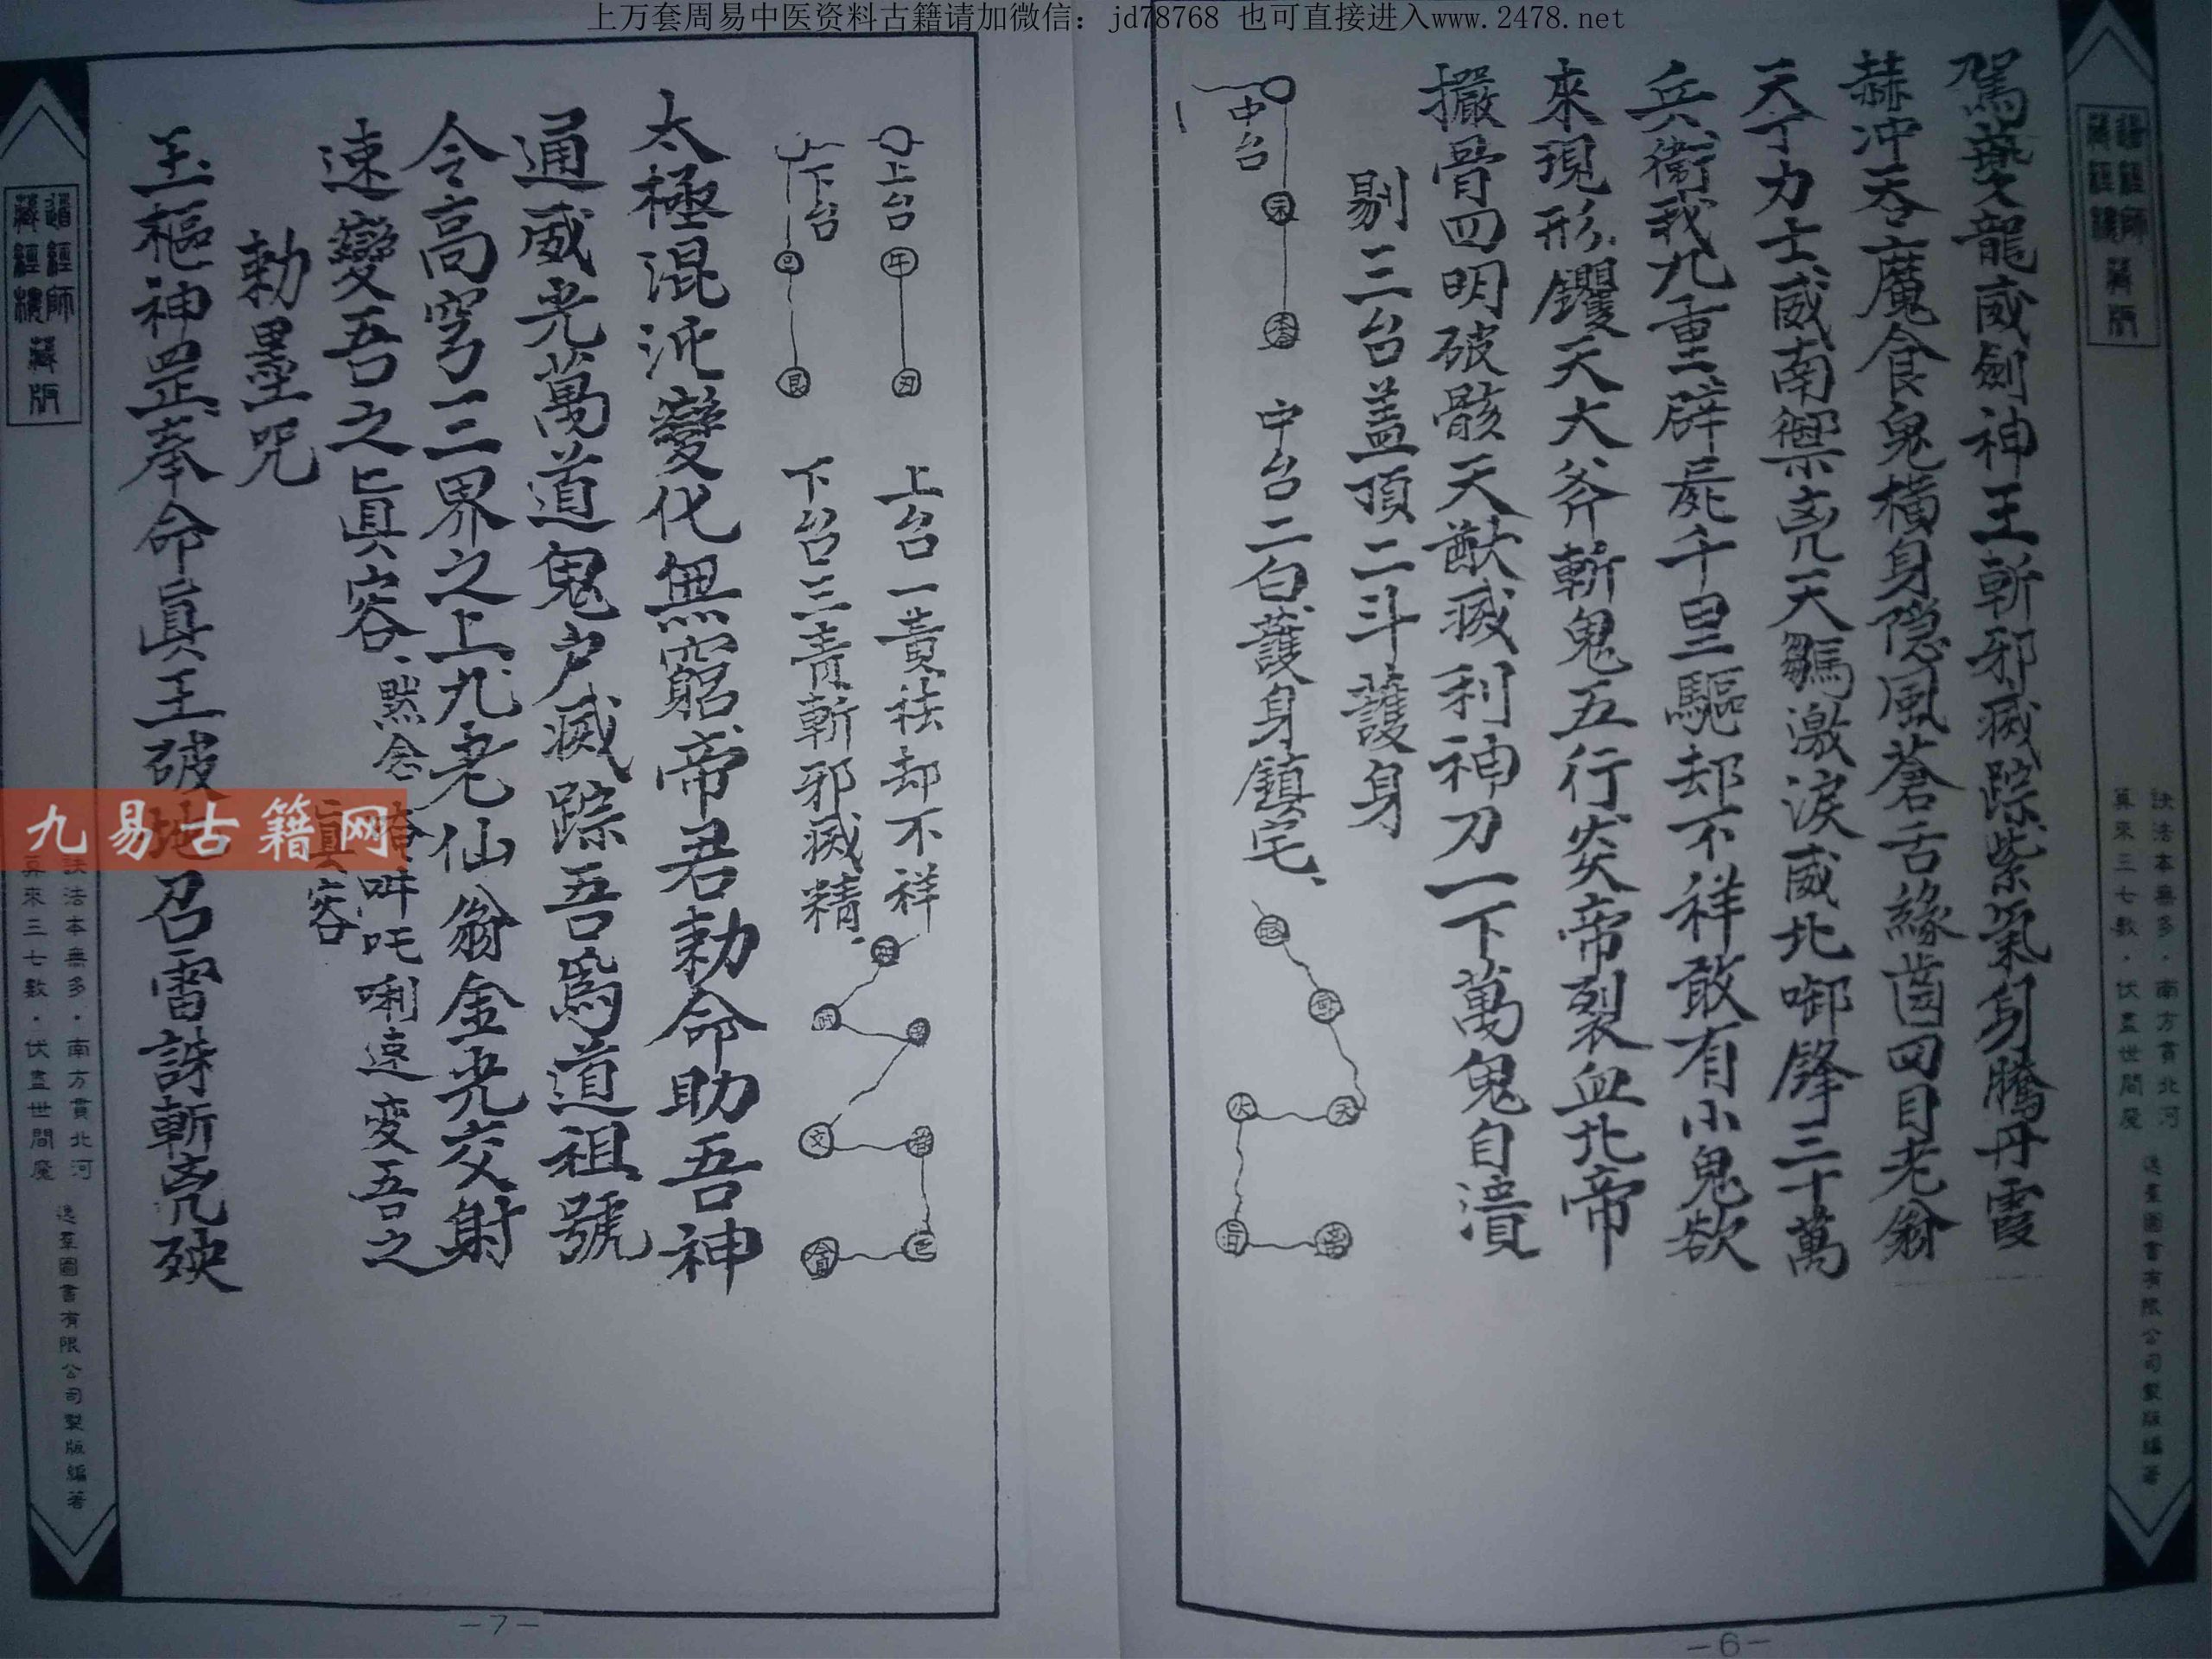 上万套周易中医资料古籍请加微信：jd78768 也可直接进入www.2478.net
駕 龍威劍神王斬邪滅踪紫氣 騰丹霞
赫冲吞魔食鬼橫身隐風蒼舌緣齒四目老翁
天丁力士威南禦兇天騶激涙威北啣鋒三十萬
兵衛我九重辟屍千里驅却不祥敢有小鬼欲
來現形钁天大斧斬鬼五行炎帝裂血北帝
撮骨四明破骸天猷滅利神刀一下萬鬼自潰
剔三台盖頂二斗護身
中台
中台二白護身鎮宅、
上台
午
上台一黃祛却不祥
下台
下台三青斬邪滅精、
太極混沌變化無窮、帝君勅命助吾神
通威光萬道鬼户滅踪吾爲道祖號
令高穹三界之上九老仙翁金光交射
速變吾之真容、默念 吽吒唎速变吾之
真容
勅墨咒
玉樞神罡奉命真王破地召雷誅斬兇殃
道經師
藏經樓
藏版
訣法本無多．南方貫北河
算來三七數．伏盡世間魔
逸羣圖書有限公司製版編著
九易古籍网
-6-
-7-